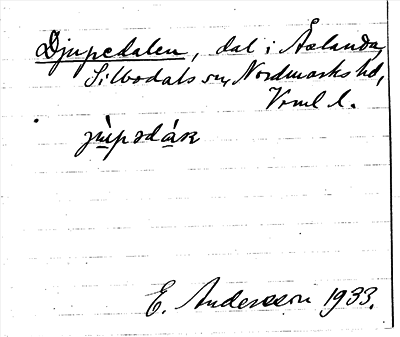 Djupedalen, dal i Årlanda,
Silbodals sn, Nordmarks hd,
Vrml l.
E. Andersson 1933.